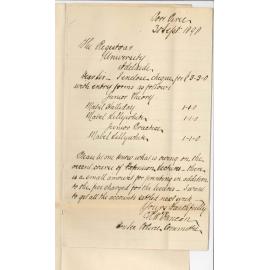 Port Pirie
30 Sept 1898
The Registrar
University
Adelaide
Dear Sir - I enclose cheque for £3-3-0
with entry forms as follows
Junior Theory
Mabel Halliday 1-1-0
Mabel Lillywhite 1-1-0
Junior Practice
Mabel Lillywhite 1-1-0
Please let me know what is owing on the
recent course of Extension lectures - there
is a small amount for printing in addition
to the fee charged for the lectures -
to get all the accounts settled next week
Yours faithfully